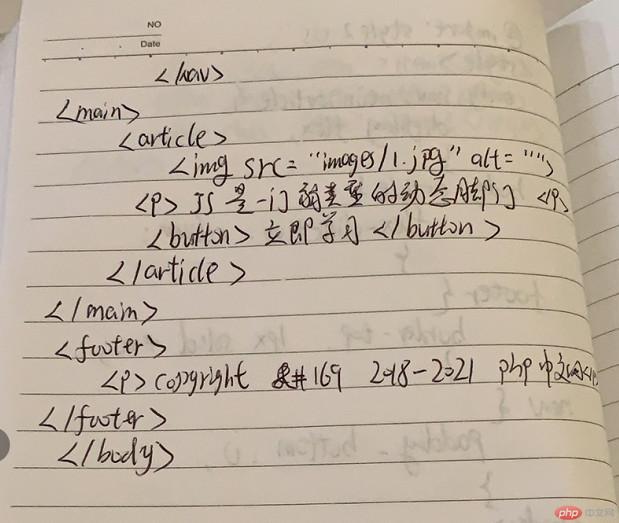 NO
Date
</nav>
<main>
<article>
<img src="images/1.jpg" alt="">
<p> JS 是一门弱类型的动态脚本 <p>
<button> 立即学习 </button>
</article>
</main>
<footer>
<p> copyright &#169 2018-2021 php中文网</p>
</footer>
</body>
php 中文网